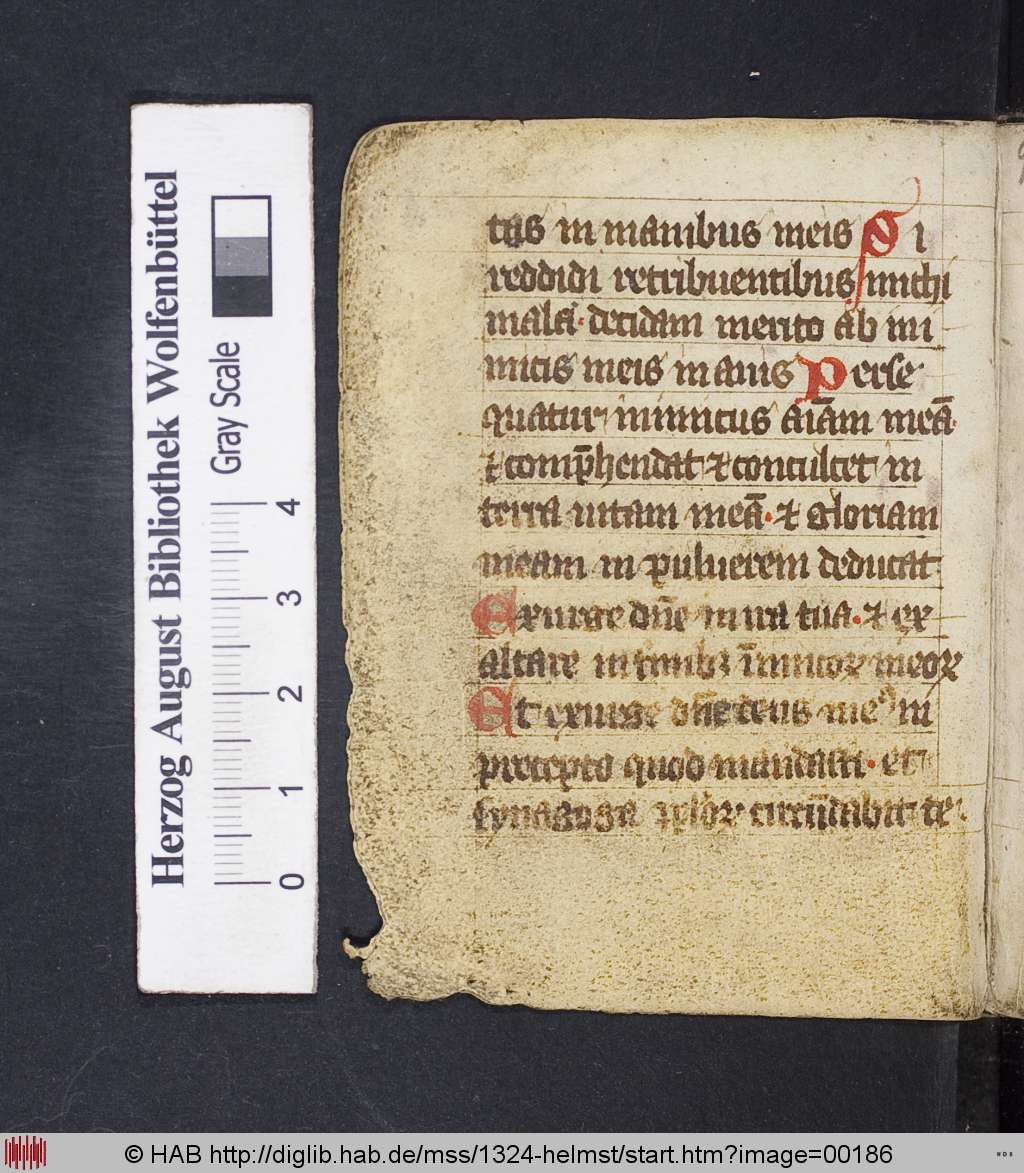 tas in manibus meis Si
reddidi retribuentibus michi
mala· decidam merito ab ini
micis meis inanis Perse
quatur inimicus aīam meā·
⁊ comp̄hendat ⁊ conculcet in
terra uitam meā· ⁊ gloriam
meam in puluerem deducat
Exurge dn̄e in ira tua· ⁊ ex
altare in finibꝫ īimicoꝝ meoꝝ
Et exurge dn̄e deus meꝰ in
precepto quod mandasti· et
synagoga ꝓploꝝ circūdabit te·
Herzog August Bibliothek Wolfenbüttel
Gray Scale
0 1 2 3 4
© HAB http://diglib.hab.de/mss/1324-helmst/start.htm?image=00186